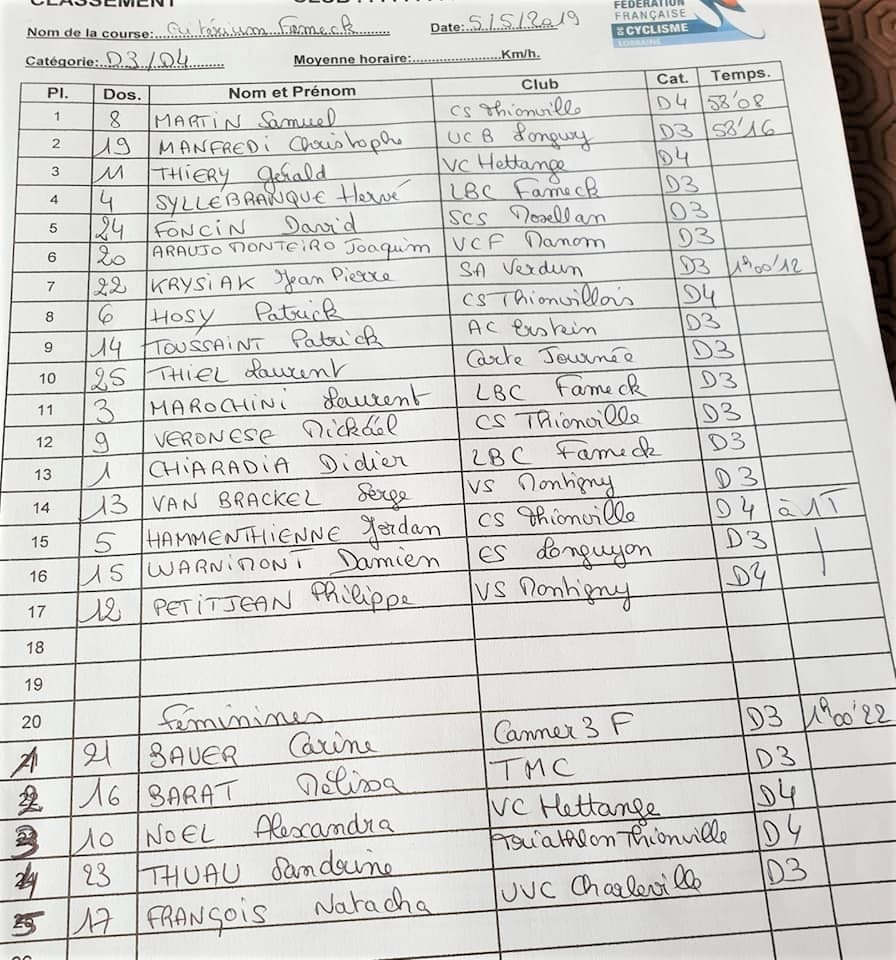 CLASSEMENT
FÉDÉRATION
FRANÇAISE
DE CYCLISME
LORRAINE
Nom de la course: Critérium Fameck Date: 5/5/2019
Catégorie: D3/D4 Moyenne horaire: Km/h.
Pl. Dos. Nom et Prénom Club Cat. Temps.
1 8 MARTIN Samuel CS Thionville D4 58'08
2 19 MANFREDI Christophe UCB Longwy D3 58'16
3 11 THIERY Gérald VC Hettange D4
4 4 SYLLEBRANQUE Hervé LBC Fameck D3
5 24 FONCIN David SCS Mosellan D3
6 20 ARAUJO MONTEIRO Joaquim VCF Manom D3
7 22 KRYSIAK Jean Pierre SA Verdun D3 1h00'12
8 6 HOSY Patrick CS Thionvillois D4
9 14 TOUSSAINT Patrick AC Erstein D3
10 25 THIEL Laurent Carte Journée D3
11 3 MAROCHINI Laurent LBC Fameck D3
12 9 VERONESE Mickaël CS Thionville D3
13 1 CHIARADIA Didier LBC Fameck D3
14 13 VAN BRACKEL Serge VS Montigny D3
15 5 HAMMENTHIENNE Jordan CS Thionville D4 à 1T
16 15 WARNIMONT Damien ES Longuyon D3
17 12 PETITJEAN Philippe VS Montigny D4
18
19
20 Féminines
1 21 BAUER Carine Canner 3F D3 1h00'22
2 16 BARAT Mélissa TMC D3
3 10 NOEL Alexandra VC Hettange D4
4 23 THUAU Sandrine Triathlon Thionville D4
5 17 FRANÇOIS Natacha UVC Charleville D3